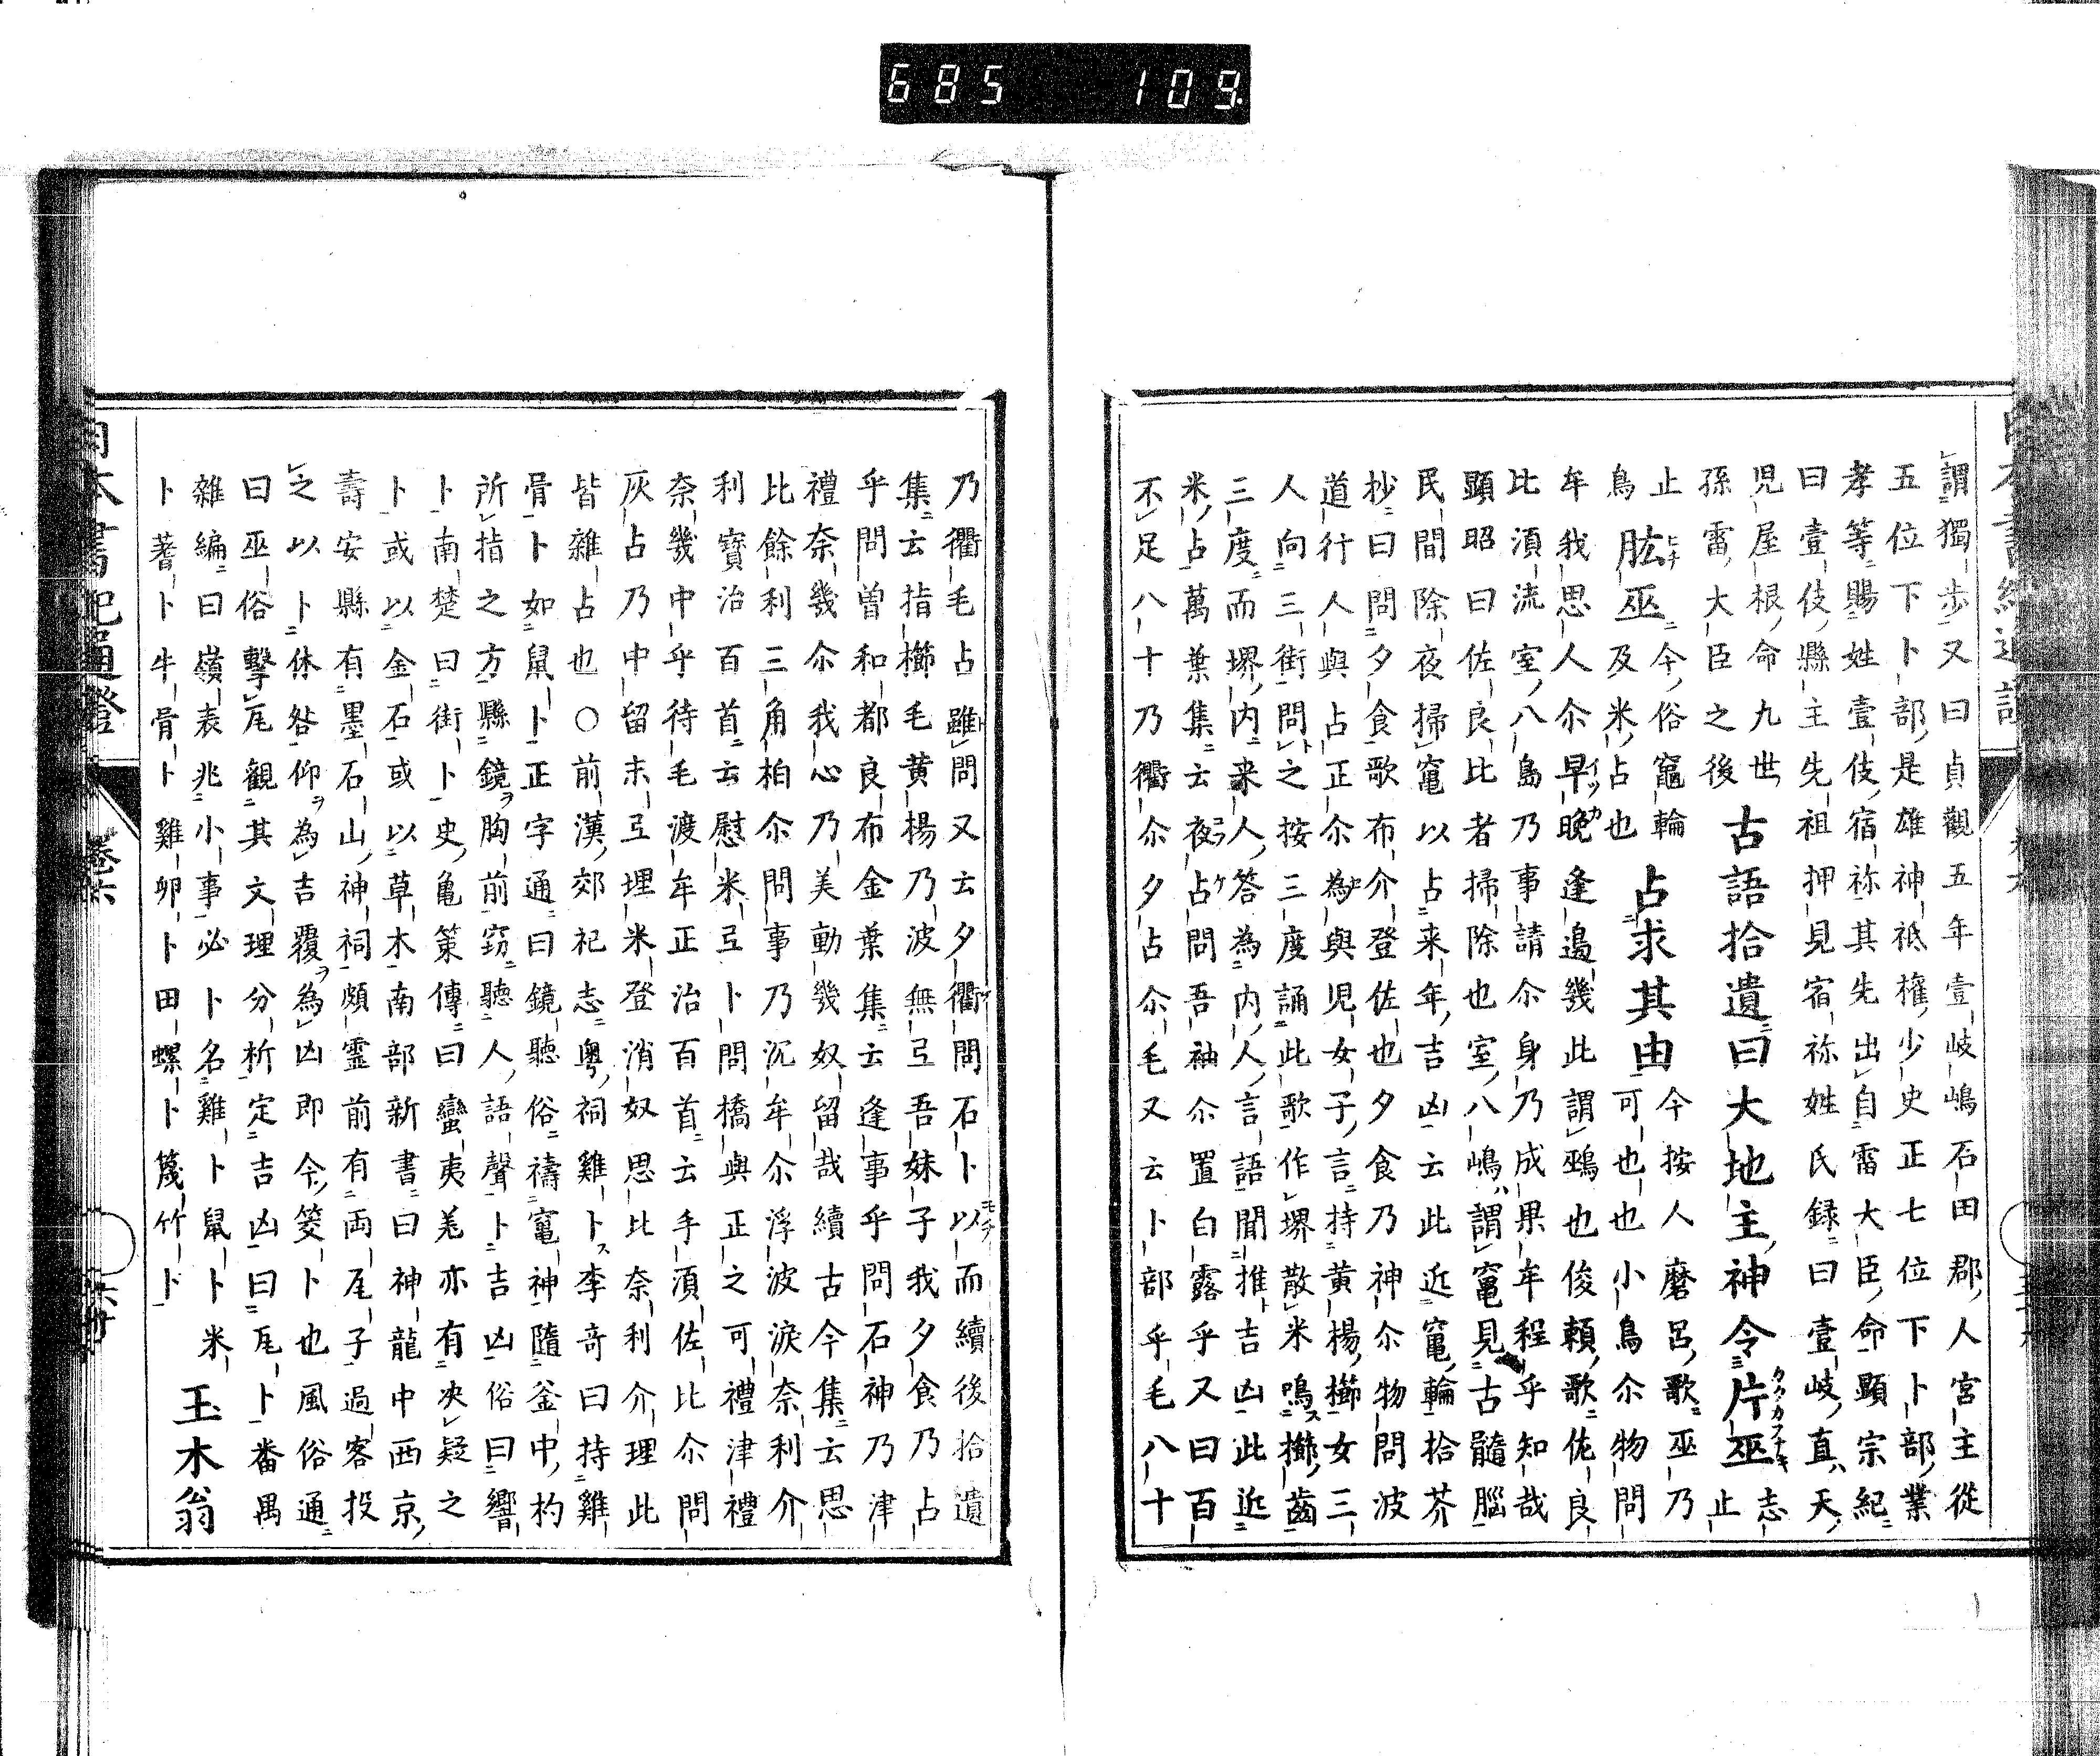 685 109
謂獨歩又曰貞觀五年壹岐嶋石田郡人宮主從
五位下卜部是雄神祇權少史正七位下卜部業
孝等賜姓壹伎宿祢其先出自雷大臣命顯宗紀
曰壹伎縣主先祖押見宿祢姓氏録曰壹岐直天
児屋根命九世孫雷大臣之後 古語拾遺曰大地主神令片巫志止
止鳥 肱巫今俗竈輪及米占也 占求其由今按人磨呂歌巫乃
可也也小鳥尒物問
牟我思人尒早晩逢邉幾此謂鵐也俊頼歌佐良
比湏流室八島乃事請尒身乃成果牟程乎知哉
顯昭曰佐良比者掃除也室八嶋謂竃見古髓腦
民間除夜掃竃以占来年吉凶云此近竃輪拾芥
抄曰問夕食歌布介登佐也夕食乃神尒物問波
道行人與占正尒為與児女子言持黄楊櫛女三
人向三街問之按三度誦此歌作堺散米鳴櫛齒
三度而堺内来人答為内人言語聞推吉凶此近
米占萬葉集云夜占問吾袖尒置白露乎又曰百
不足八十乃衢尒夕占尒毛又云卜部乎毛八十
乃衢毛占雖問又云夕衢問石卜以而續後拾遺
集云指櫛毛黄楊乃波無弖吾妹子我夕食乃占
乎問曽和都良布金葉集云逢事乎問石神乃津
禮奈幾尒我心乃美動幾奴留哉續古今集云思
比餘利三角柏尒問事乃沉牟尒浮波淚奈利介
利寶治百首云慰米弖卜問橋與正之可禮津禮
奈幾中乎待毛渡牟正治百首云手湏佐比尒問
灰占乃中留末弖埋米登消奴思比奈利介理此
皆雜占也○前漢郊祀志粤祠雞卜李奇曰持雞
骨卜如鼠卜正字通曰鏡聽俗禱竃神隨釜中杓
所指之方縣鏡胸前窈聽人語聲卜吉凶俗曰響
卜南楚曰街卜史亀策傳曰蠻夷羌亦有决疑之
卜或以金石或以草木南部新書曰神龍中西京
壽安縣有墨石山神祠頗霊前有両尾子過客投
之以卜休咎仰為吉覆為凶即今筊卜也風俗通
曰巫俗擊尾觀其文理分析定吉凶曰尾卜番禺
雜編曰嶺表兆小事必卜名雞卜鼠卜米
卜蓍卜牛骨卜雞卵卜田螺卜篾竹卜 玉木翁
日本書紀通證 卷六